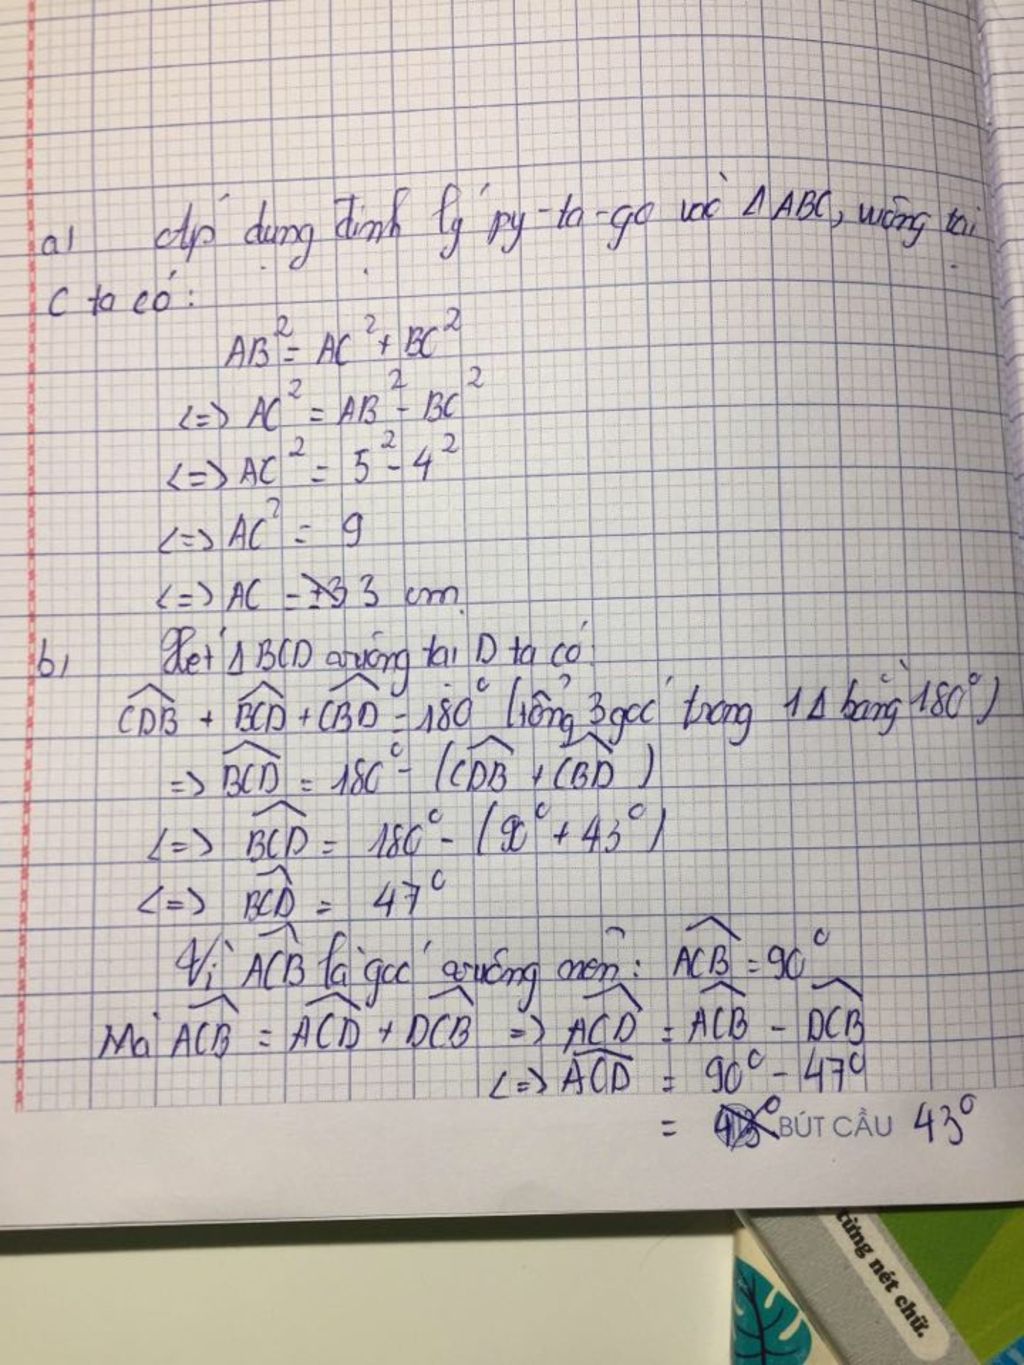 a) Áp dụng định lý py-ta-go vào ΔABC, vuông tại
C ta có:
AB² = AC² + BC²
<=> AC² = AB² - BC²
<=> AC² = 5² - 4²
<=> AC² = 9
<=> AC = 3 cm
b) Xét ΔBCD vuông tại D ta có
\widehat{CDB} + \widehat{BCD} + \widehat{CBD} = 180° (tổng 3 góc trong 1Δ bằng 180°)
=> \widehat{BCD} = 180° - (\widehat{CDB} + \widehat{CBD})
<=> \widehat{BCD} = 180° - (90° + 43°)
<=> \widehat{BCD} = 47°
Vì \widehat{ACB} là góc vuông nên: \widehat{ACB} = 90°
Mà \widehat{ACB} = \widehat{ACD} + \widehat{DCB} => \widehat{ACD} = \widehat{ACB} - \widehat{DCB}
<=> \widehat{ACD} = 90° - 47°
= BÚT CẦU 43°
từng nét chữ.